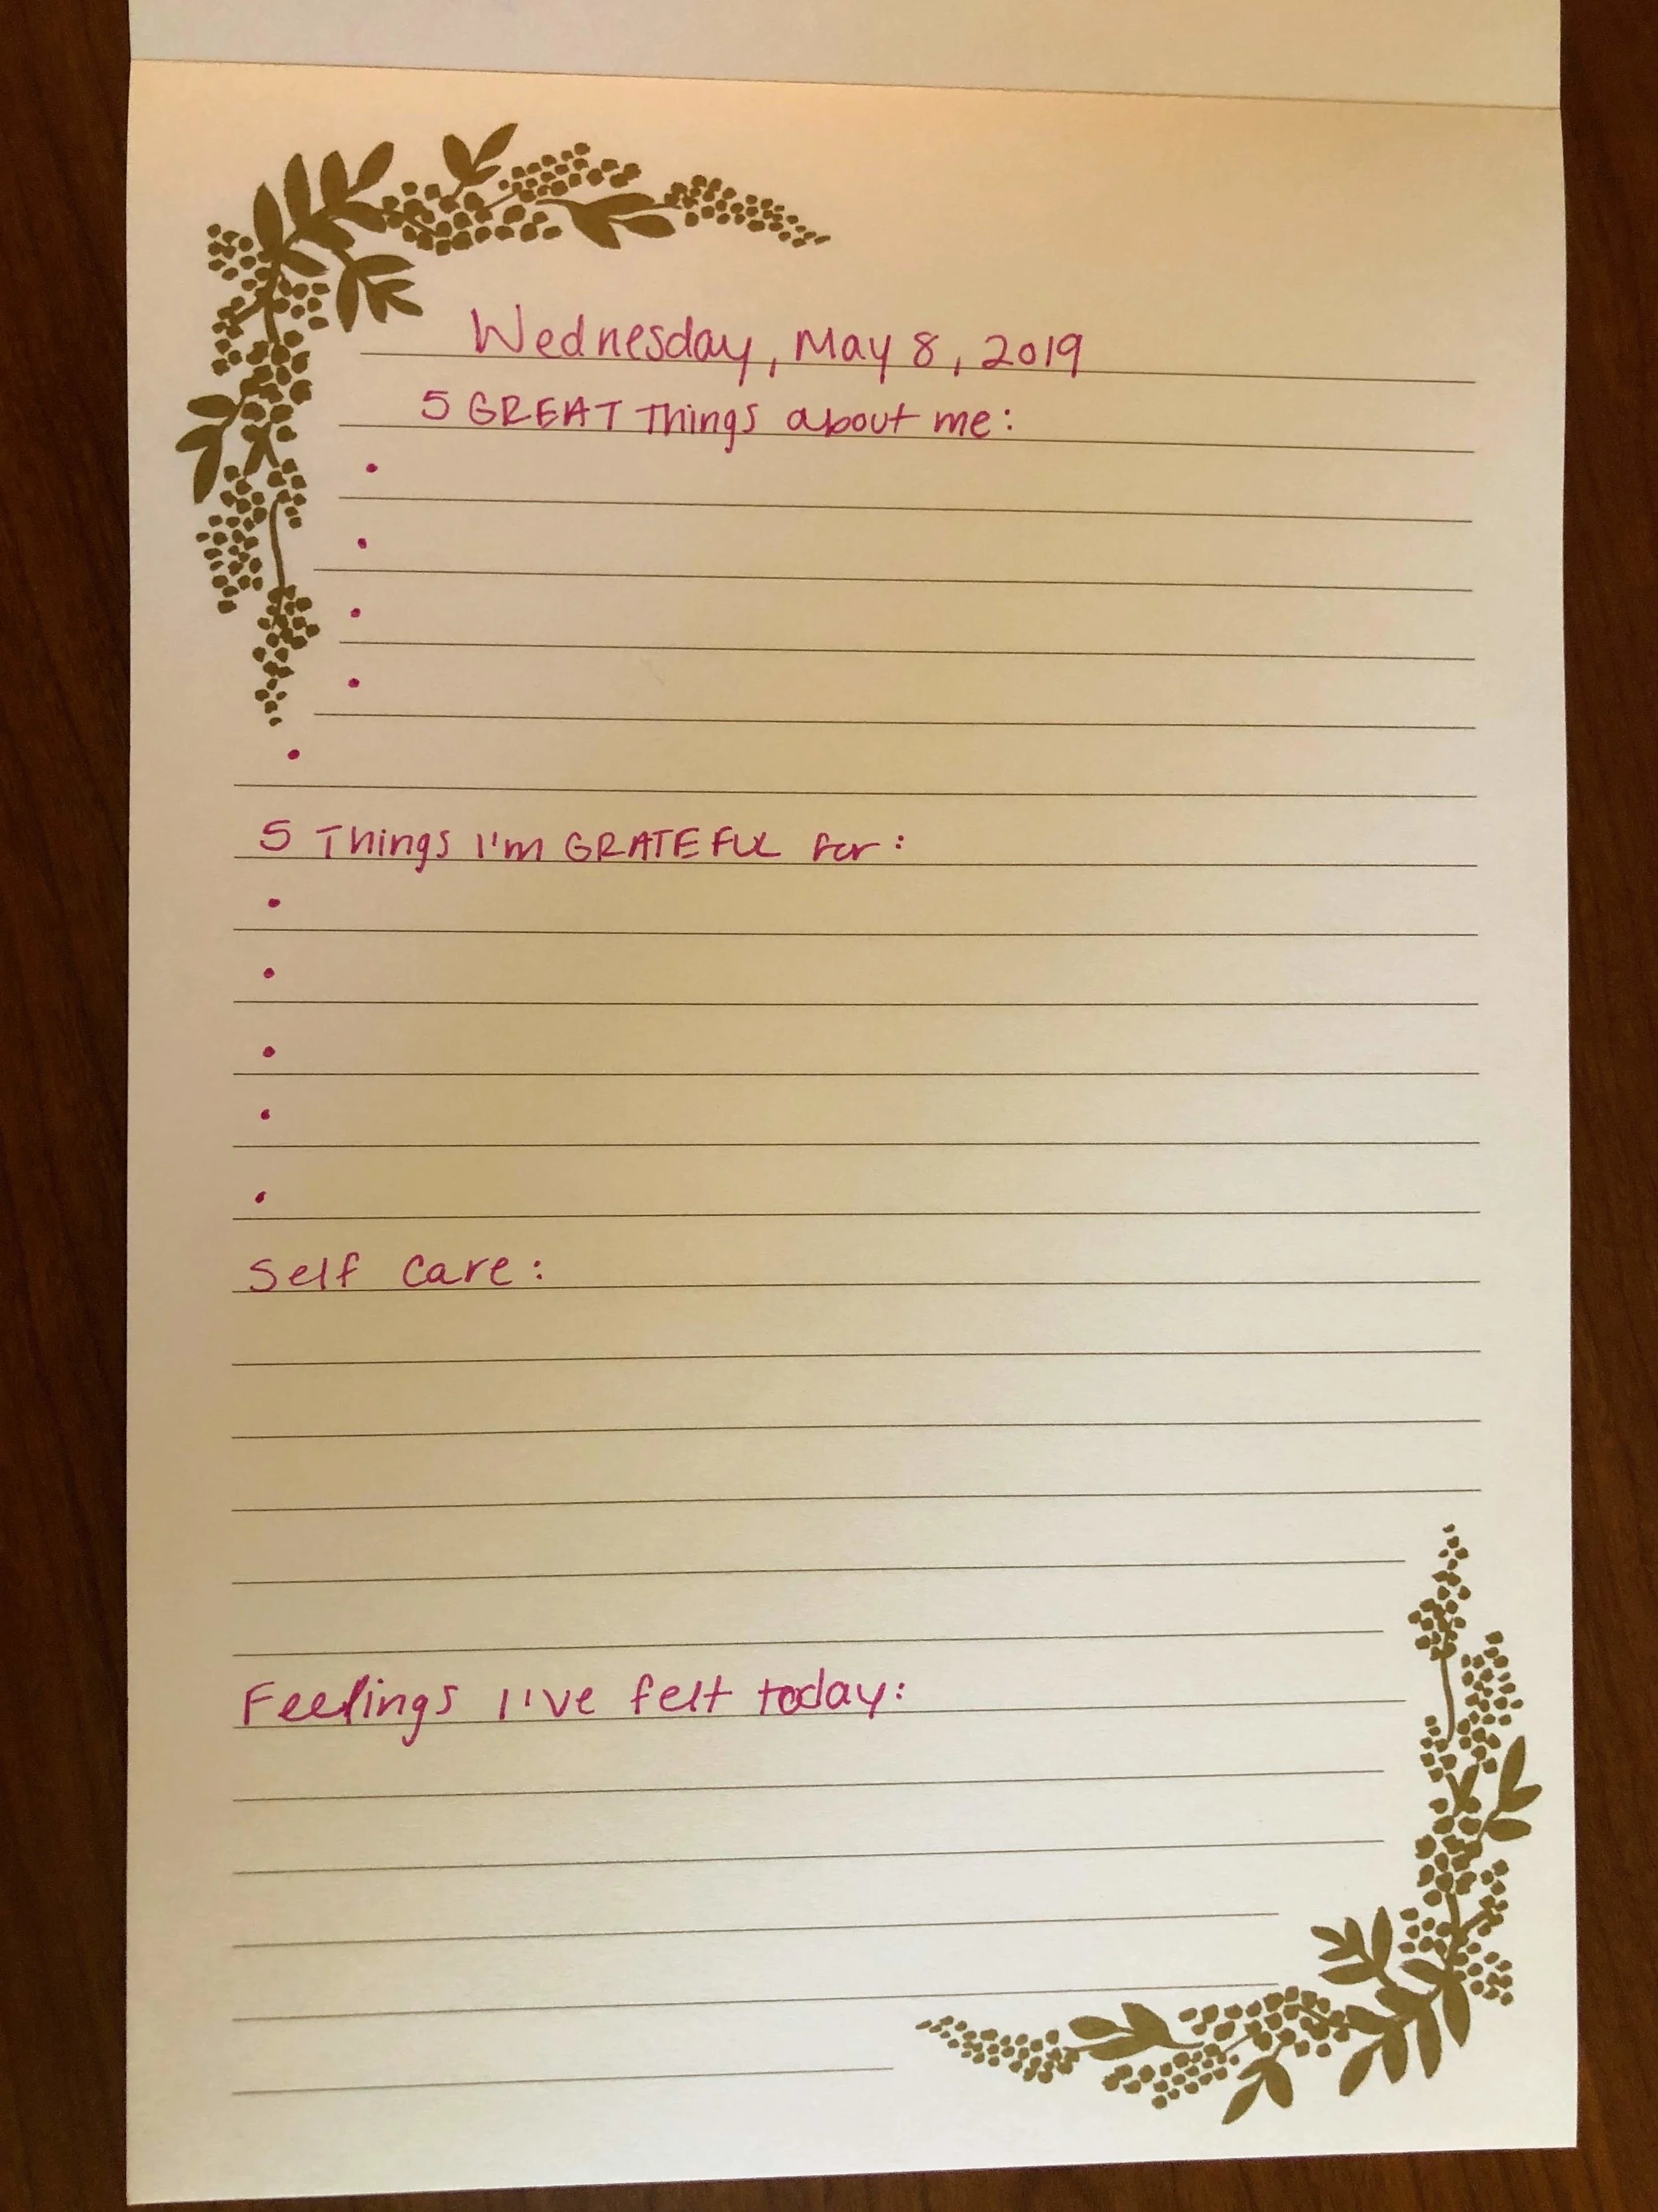 Wednesday, May 8, 2019
5 GREAT Things about me:
•
•
•
•
•
5 Things I'm GRATEFUL for:
•
•
•
•
•
Self Care:
Feelings I've felt today: